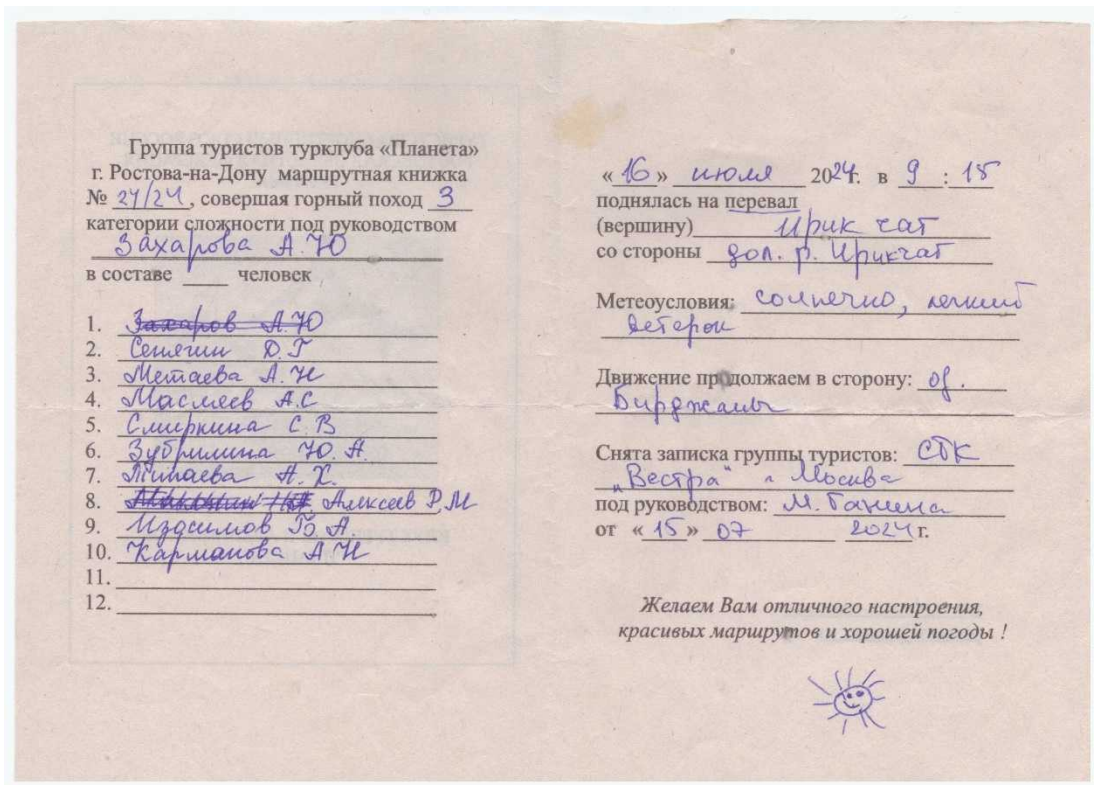 Группа туристов турклуба «Планета»
г. Ростова-на-Дону маршрутная книжка
№ 24/24, совершая горный поход 3
категории сложности под руководством
Захарова А.Ю
в составе ____ человек
1. Захаров А.Ю
2. Сенягин Д.Г
3. Метаева А.Н
4. Маслеев А.С
5. Смиркина С.В
6. Зубрилина Ю.А.
7. Титаева А.Х.
8. Алексеев Р.М
9. Издисимов Б.А.
10. Карманова А Н
11.
12.
«16» июля 2024г. в 9 : 15
поднялась на перевал
(вершину) Ирик чат
со стороны дол. р. Ирикчат
Метеоусловия: солнечно, легкий
ветерок
Движение продолжаем в сторону: оз.
Бирджалы
Снята записка группы туристов: СТК
"Вестра" г Москва
под руководством: М. Ганина
от «15» 07 2024 г.
Желаем Вам отличного настроения,
красивых маршрутов и хорошей погоды !